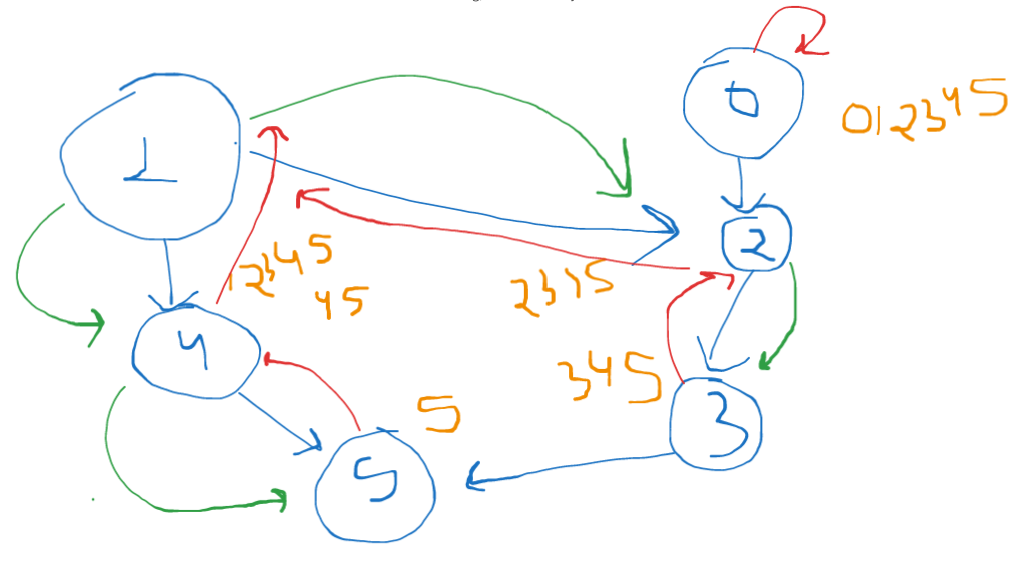 0
012345
1
2
12345
2345
45
4
345
3
5
5